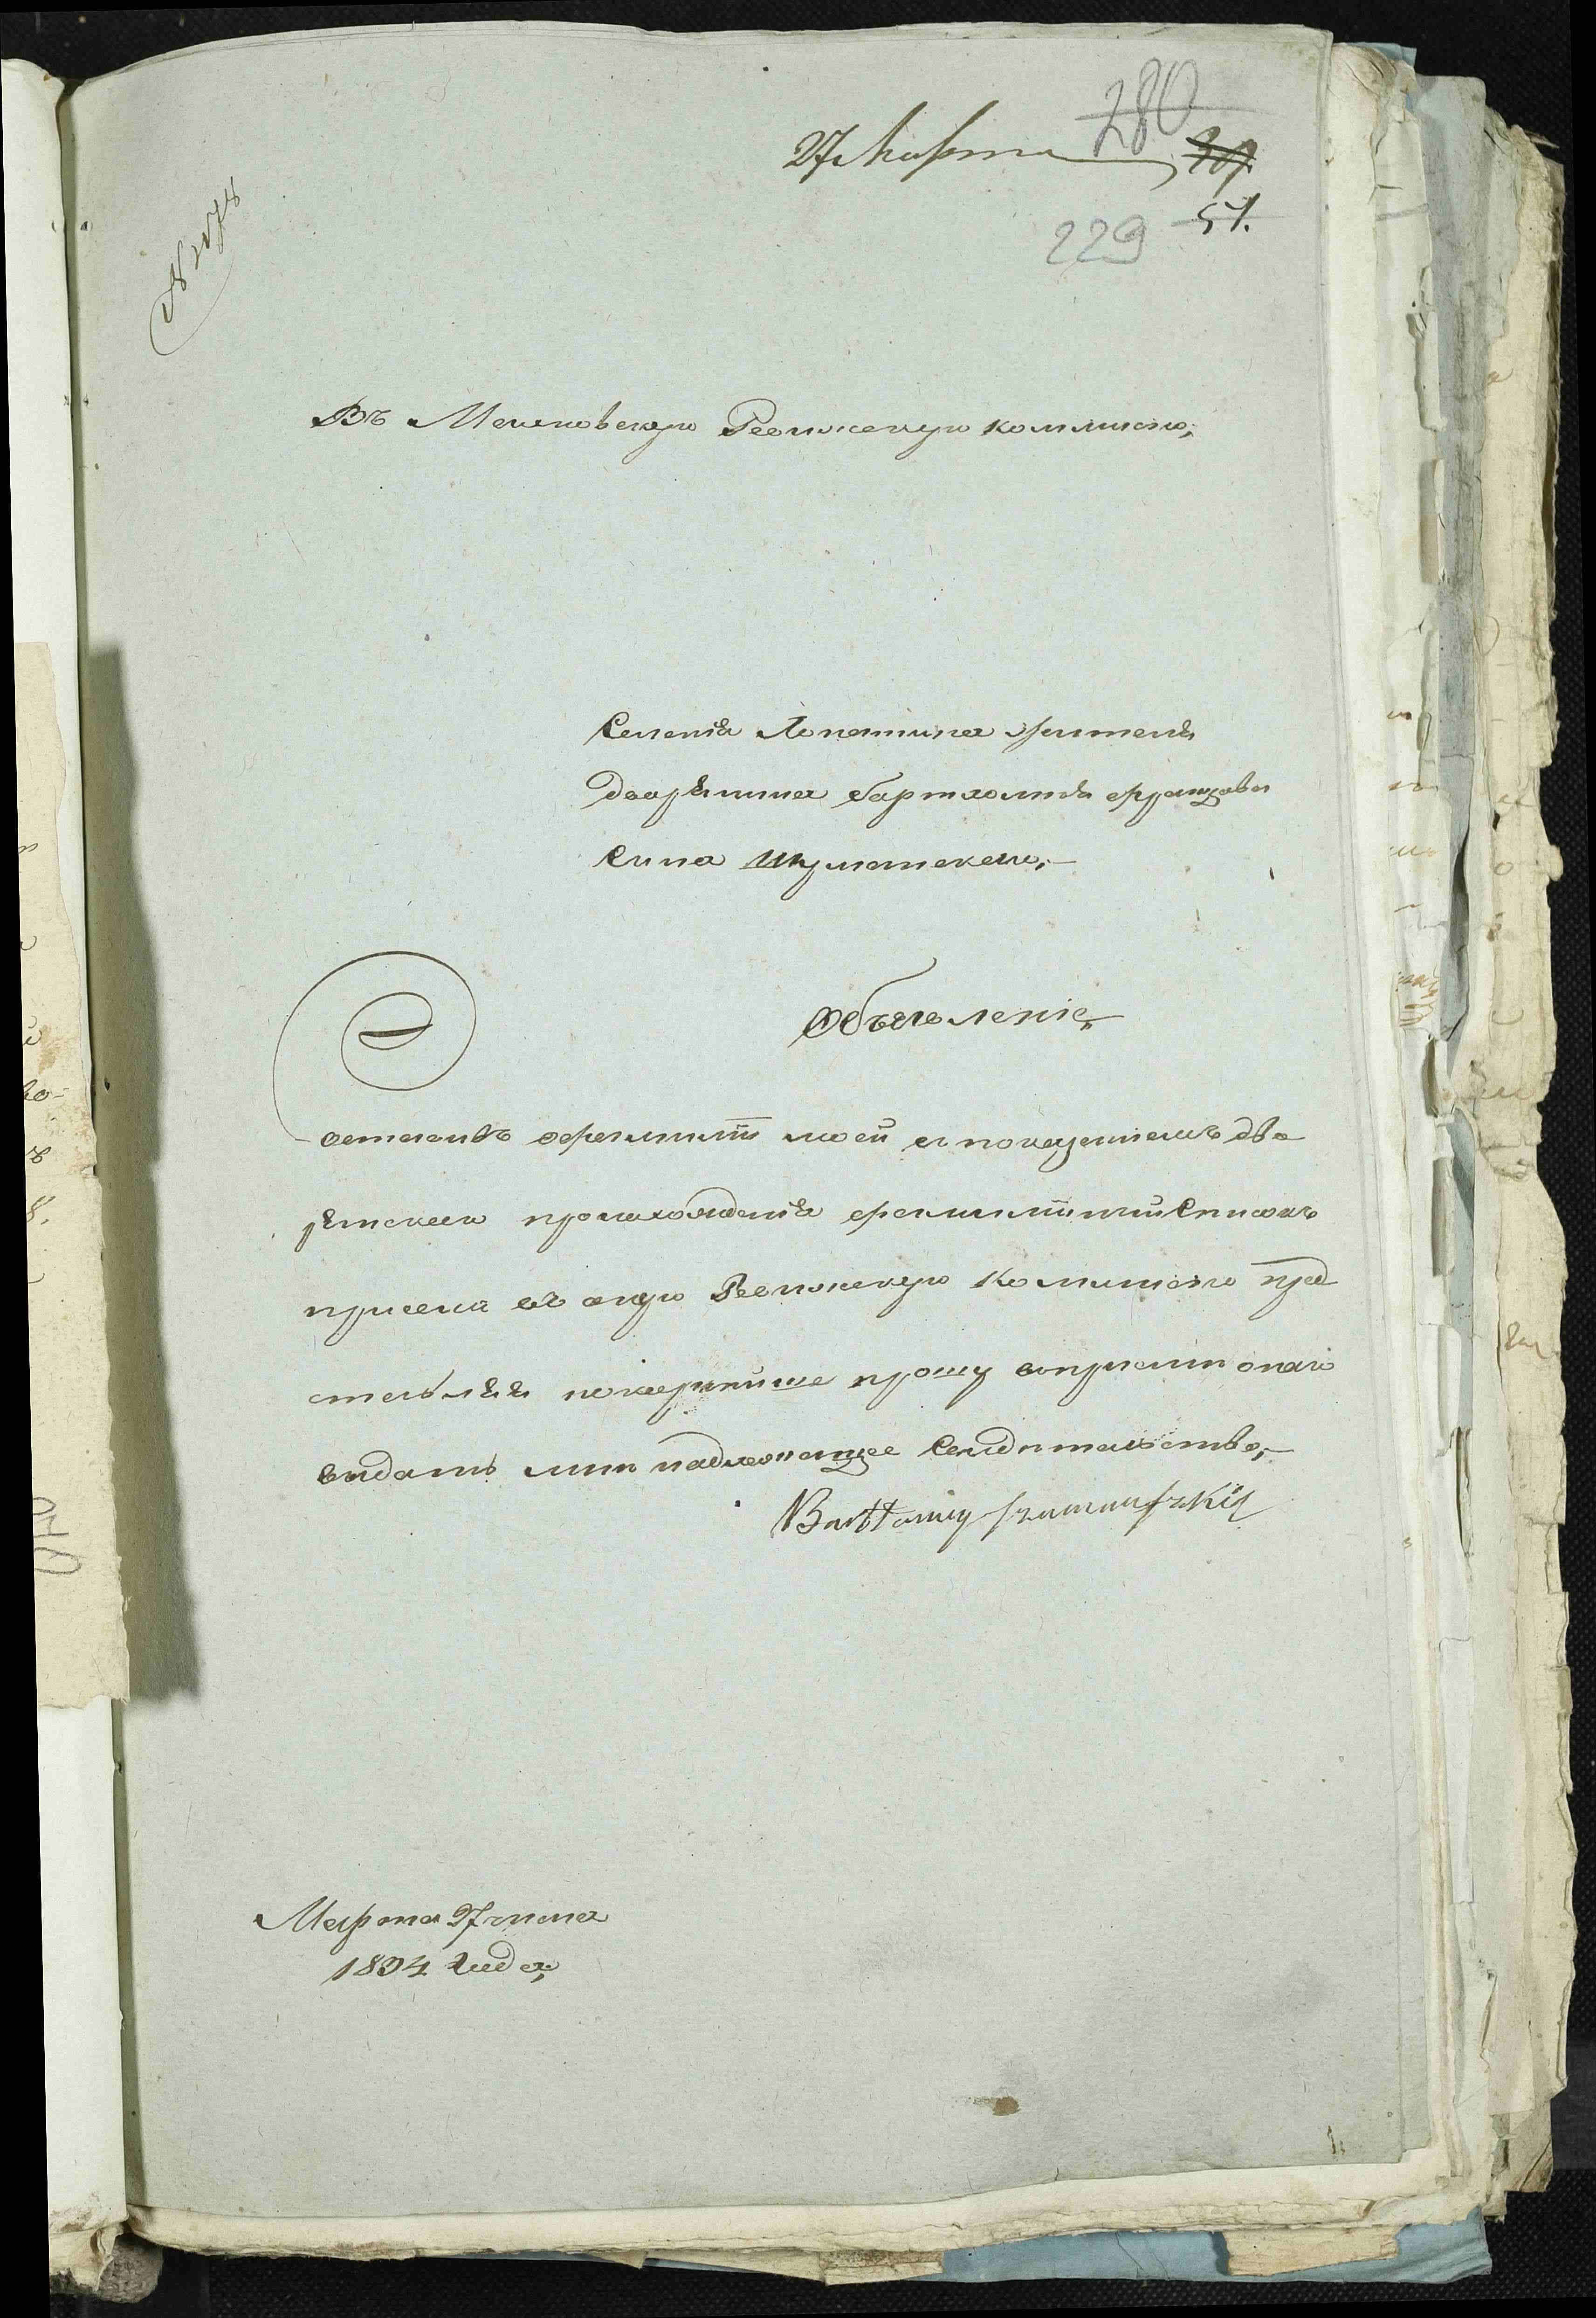 27 Марта
280
307
51.
229
№ 2078
Въ Махновскую Ревижскую коммисію,
Селенія Лопатина жителя
дворянина бартломея францова
Сына Шуманскаго,
Объявленіе
О составѣ фамиліи моей съ показаніемъ дво
рянскаго произхожденія фамилійний Списокъ
при семъ въ оную Ревижскую Комисію пред
ставляя покорнѣйше прошу въ пріемѣ онаго
выдать мнѣ надлежащее Свидѣтельство,
Bartłomiy Szumańszkiy
Марта 27 числа
1834 года,